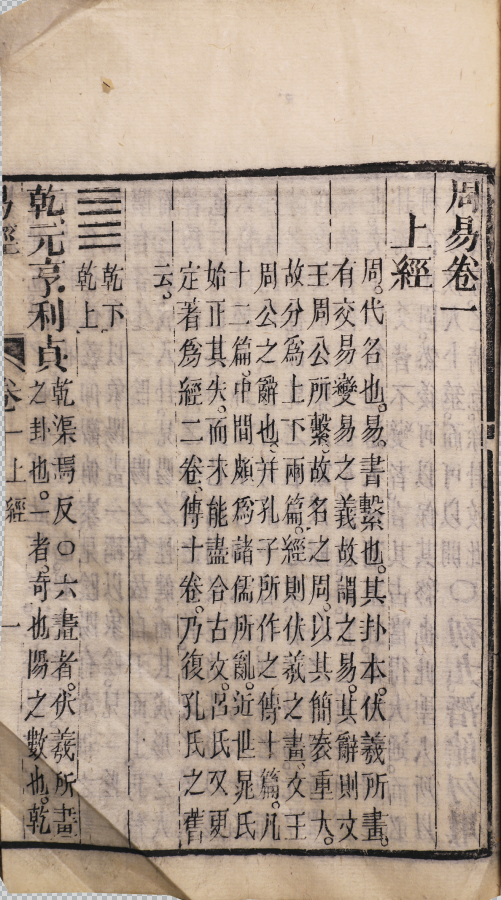 周易卷一
上經
周。代名也。易。書繫也。其卦本。伏羲所畫。
有交易變易之義。故謂之易。其辭則文
王周公所繫。故名之周。以其簡袠重大。
故分爲上下兩篇。經則伏羲之畫。文王
周公之辭也。并孔子所作之傳十篇。凡
十二篇。中間頗爲諸儒所亂。近世晁氏
始正其失。而未能盡合古文。呂氏又更
定著爲經二卷。傳十卷。乃復孔氏之舊
云。
乾下
乾上
乾元亨利貞
乾渠焉反○六畫者。伏羲所畫
之卦也。一者。奇也。陽之數也。乾
易經
卷一上經
一